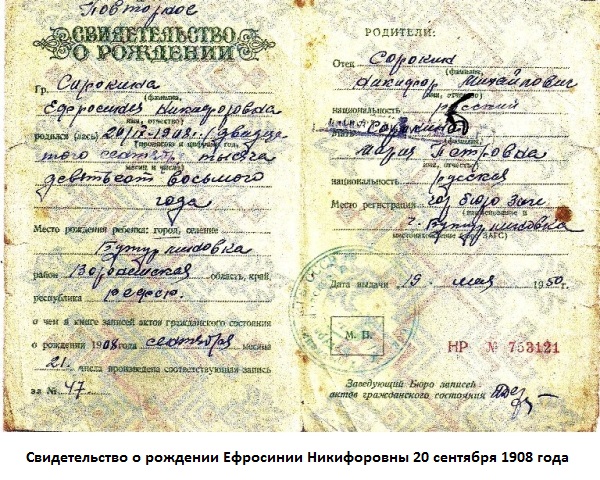 Повторное
СВИДЕТЕЛЬСТВО
О РОЖДЕНИИ
Гр. Сарокина
(фамилия,
Ефросиния Никифоровна
имя, отчество)
родился (лась) 20/IX-1908. (двадца
(прописью и цифрами год,
того сентяб. тысяча
месяц и число)
девятьсот восьмого
года
Место рождения ребенка: город, селение
Бутурлиновка
район Воронежская область, край,
республика РСФСР.
о чем в книге записей актов гражданского состояния
о рождении 1908 года сентября месяца
21. числа произведена соответствующая запись
за № 47
РОДИТЕЛИ:
Отец Сорокин
(фамилия,
Никифор Михайлович
имя, отчество)
национальность русский
Мать Сорокина
(фамилия,
Мария Петровна
имя, отчество)
национальность русская
Место регистрации гор бюро загс
(наименование и
г. Бутурлиновка
местонахождение бюро ЗАГС)
Дата выдачи 19. мая 1950г.
М. П.
НР № 753121
Заведующий Бюро записей
актов гражданского состояния
Свидетельство о рождении Ефросинии Никифоровны 20 сентября 1908 года